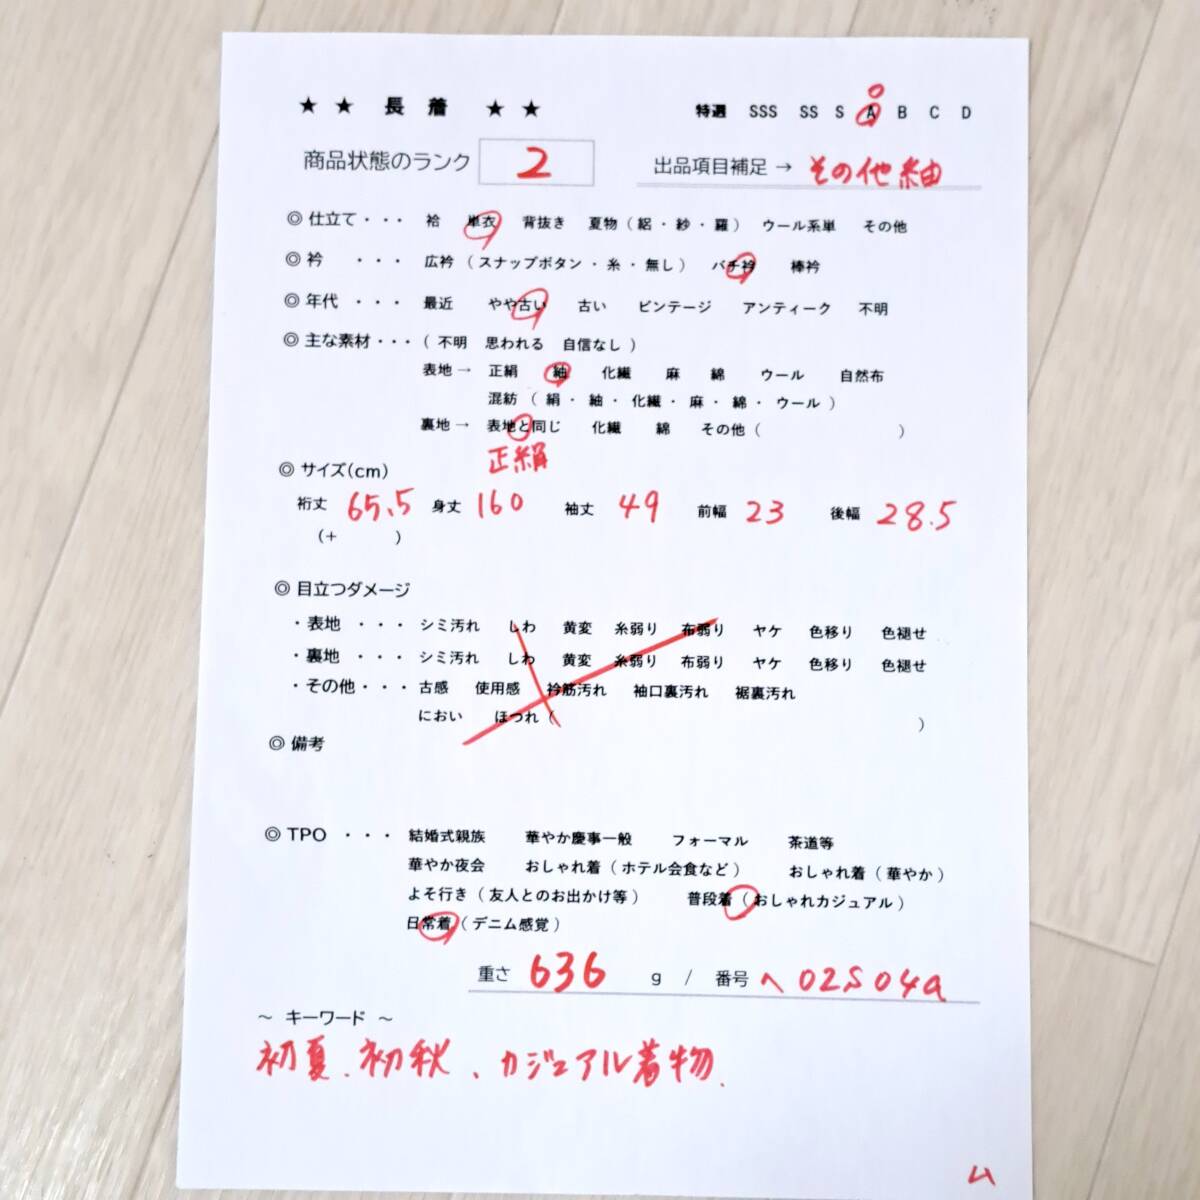 ★ ★ 長 着 ★ ★ 特選 SSS SS S A B C D
商品状態のランク 2 出品項目補足 → その他紬
◎ 仕立て・・・ 袷 単衣 背抜き 夏物（絽・紗・羅） ウール系単 その他
◎ 衿 ・・・ 広衿（スナップボタン・糸・無し） バチ衿 棒衿
◎ 年代 ・・・ 最近 やや古い 古い ビンテージ アンティーク 不明
◎ 主な素材・・・（ 不明 思われる 自信なし ）
表地→ 正絹 紬 化繊 麻 綿 ウール 自然布
混紡（ 絹・ 紬・化繊・麻・綿・ウール ）
裏地→ 表地と同じ 化繊 綿 その他（ ）
正絹
◎ サイズ(cm)
裄丈 65.5 身丈 160 袖丈 49 前幅 23 後幅 28.5
（+ ）
◎ 目立つダメージ
・表地 ・・・ シミ汚れ しわ 黄変 糸弱り 布弱り ヤケ 色移り 色褪せ
・裏地 ・・・ シミ汚れ しわ 黄変 糸弱り 布弱り ヤケ 色移り 色褪せ
・その他・・・ 古感 使用感 衿筋汚れ 袖口裏汚れ 裾裏汚れ
におい ほつれ（ ）
◎ 備考
◎ TPO ・・・ 結婚式親族 華やか慶事一般 フォーマル 茶道等
華やか夜会 おしゃれ着（ホテル会食など） おしゃれ着（華やか）
よそ行き（友人とのお出かけ等） 普段着（おしゃれカジュアル）
日常着（デニム感覚）
重さ 636 g / 番号 へ02S04a
～ キーワード ～
初夏、初秋、カジュアル着物、